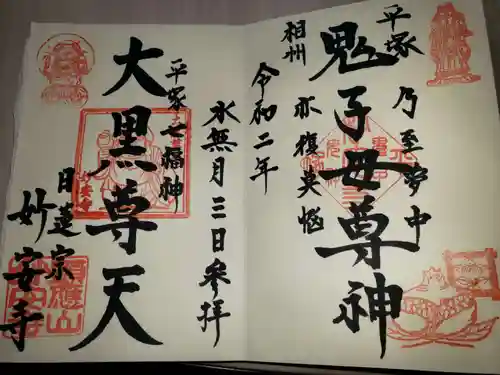 平塚 乃至夢中
鬼子母尊神
相州 亦復莫悩
令和二年
水無月三日参拝
平塚七福神
大黒尊天
日蓮宗
妙安寺